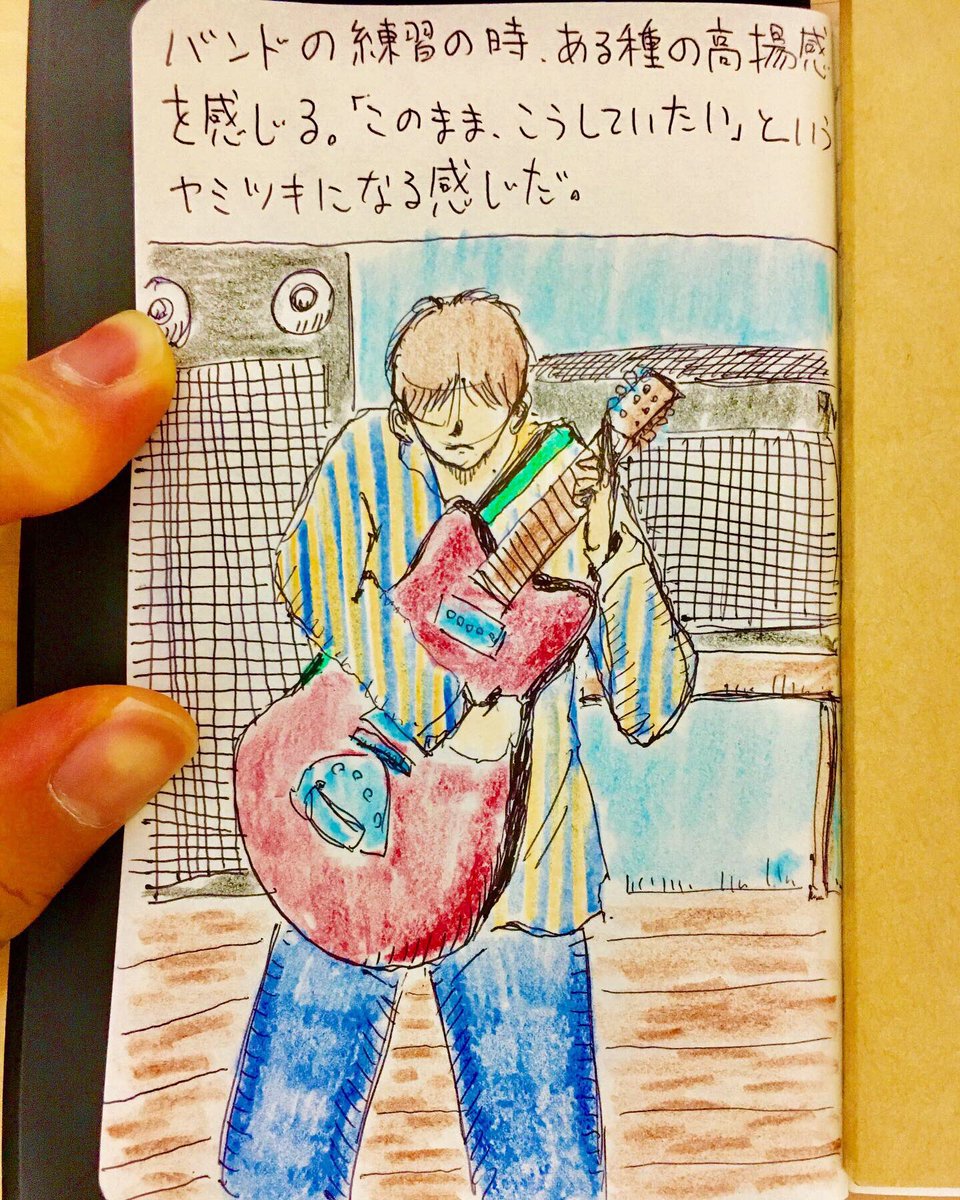 バンドの練習の時、ある種の高揚感
を感じる。「このまま、こうしていたい」という
ヤミツキになる感じだ。